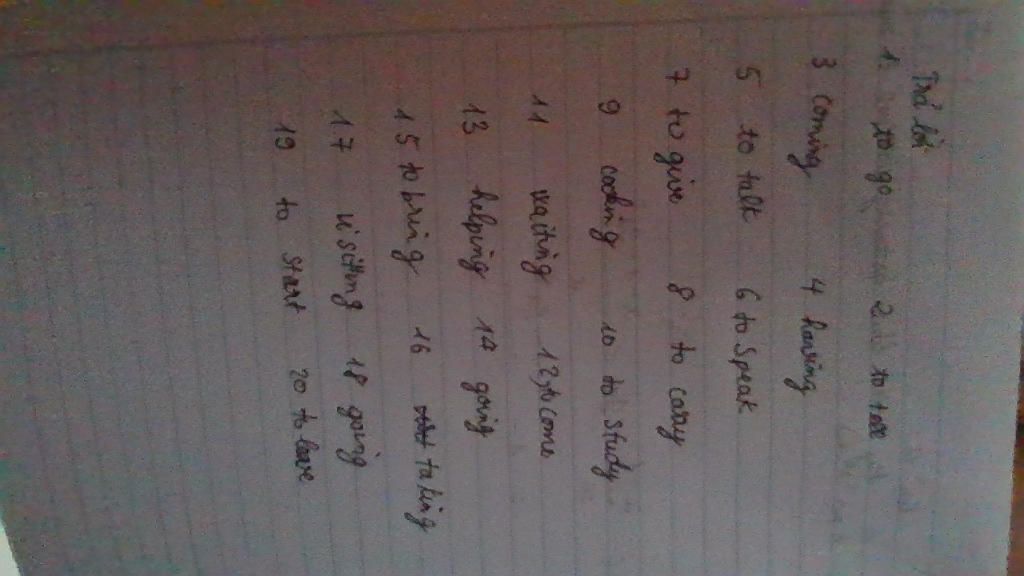 Trả lời
1. to go 2. to take
3 coming 4 having
5 to talk 6 to speak
7 to give 8 to cary
9 cooking 10 to study
11 waiting 12, to come
13 helping 14 going
15 to bring 16 taking
17 visiting 18 going
19 to start 20 to leave